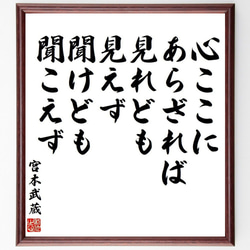 心ここに
あらざれば
見れども
見えず
聞けども
聞こえず
宮本武蔵